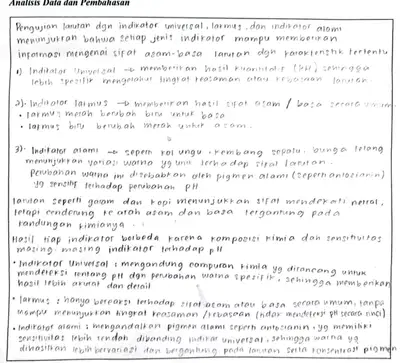 Analisis Data dan Pembahasan
Pengujian larutan dgn indikator universal, larmus, dan indikator alami
menunjukkan bahwa setiap jenis indikator mampu memberikan
informasi mengenai sifat asam-basa larutan dgn karakteristik tertentu
1) Indikator Universal → memberikan hasil kuantitatif (pH) sehingga
lebih spesifik mengetahui tingkat keasaman atau kebasaan larutan.
2). Indikator larmus → memberikan hasil sifat asam / basa secara umum
• larmus merah berubah biru untuk basa
• larmus biru berubah merah untuk asam.
3). Indikator alami → seperti kol ungu, kembang sepatu, bunga telang
menunjukkan variasi warna yg unik terhadap sifat larutan.
Perubahan warna ini disebabkan oleh pigmen alami (seperti antosianin)
yg sensitif terhadap perubahan pH
larutan seperti garam dan kopi menunjukkan sifat mendekati netral,
tetapi cenderung ke arah asam dan basa tergantung pada
kandungan kimianya.
Hasil tiap indikator berbeda karena komposisi kimia dan sensitivitas
masing-masing indikator terhadap pH
• Indikator Universal : mengandung campuran kimia yg dirancang untuk
mendeteksi tentang pH dgn perubahan warna spesifik, sehingga memberikan
hasil lebih akurat dan detail
• larmus : hanya bereaksi terhadap sifat asam atau basa secara umum, tanpa
mampu menunjukkan tingkat keasaman / kebasaan (tidak mendeteksi pH secara rinci)
• Indikator alami : mengandalkan pigmen alami seperti antosianin, yg memiliki
sensitivitas lebih rendah dibanding indikator universal, sehingga warna yg
dihasilkan lebih bervariasi dan bergantung pada larutan serta konsentrasi pigmen